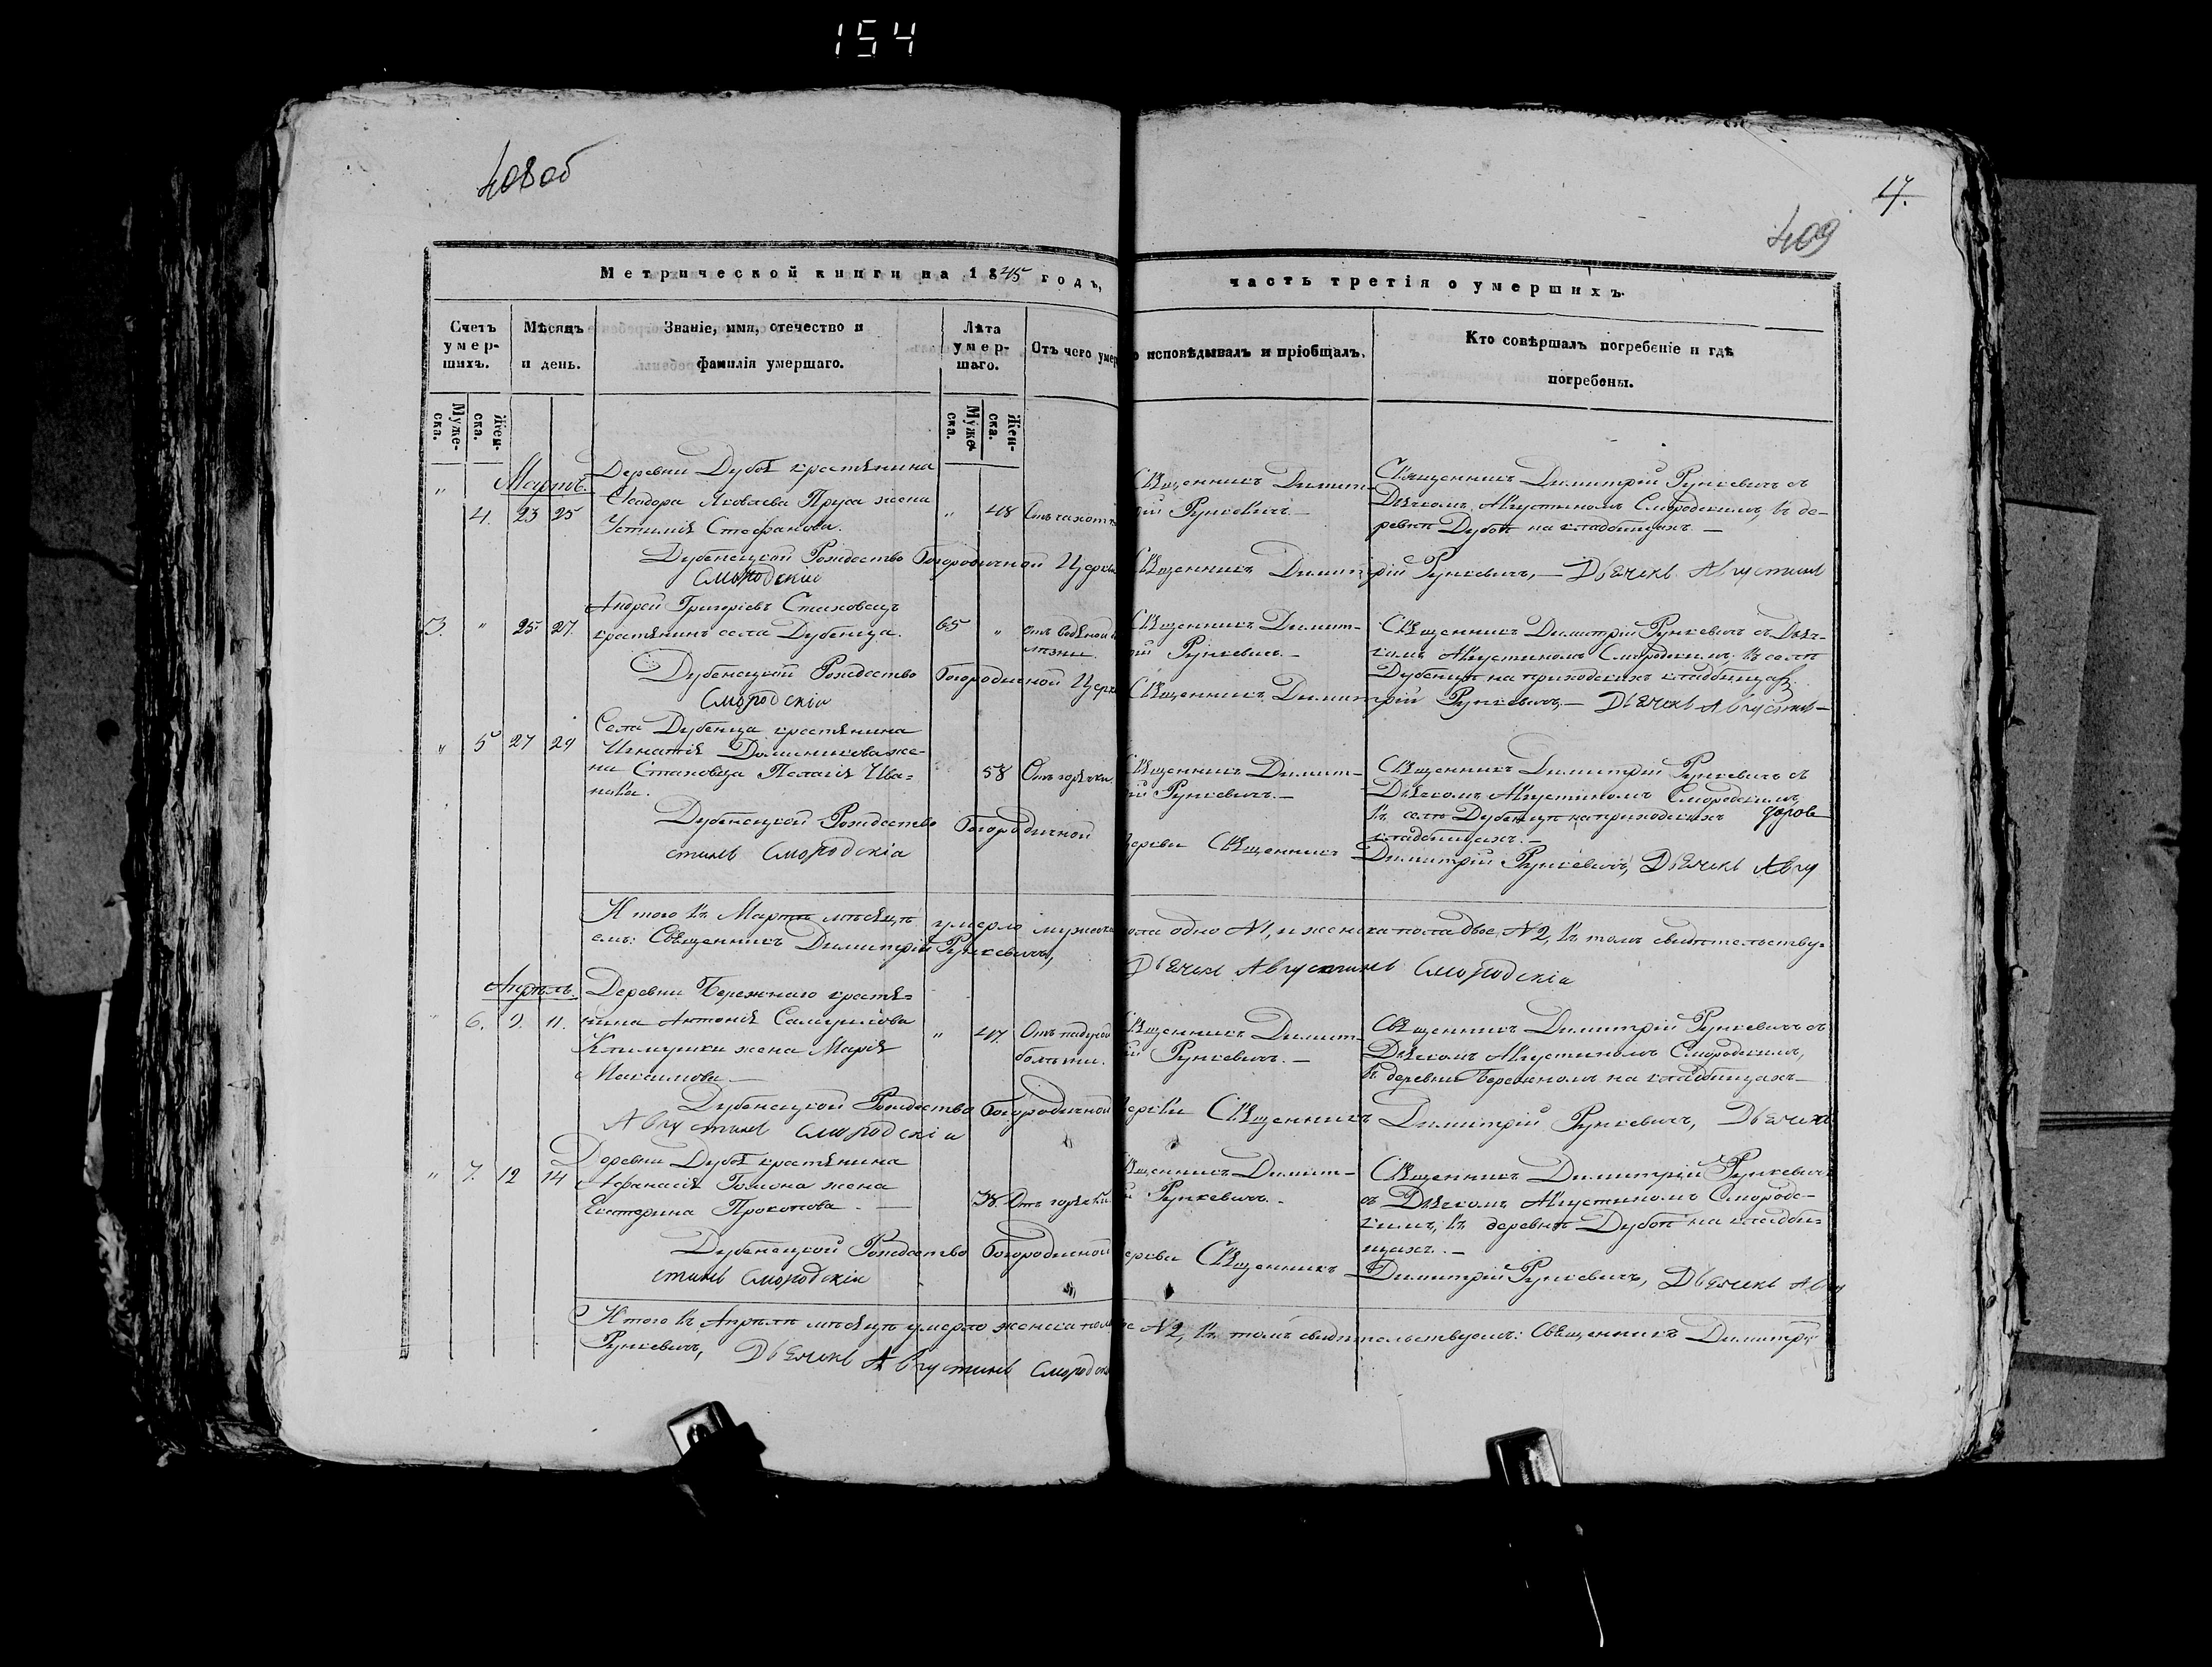 154
408об
17.
409
Метрической книги на 1845 годъ, часть третія о умершихъ.
Счетъ умер-шихъ.
Мѣсяцъ и день.
Званіе, имя, отечество и фамилія умершаго.
Лѣта умер-шаго.
Отъ чего умер
о исповѣдывалъ и пріобщалъ.
Кто совѣршалъ погребеніе и гдѣ погребены.
Муже-ска.
Жен-ска.
Муже-ска.
Жен-ска.
Мартъ.
„ 4. 23 25
Деревни Дубоѣ крестьянина
Исидора Яковлева Пруса жена
Устинія Стефанова.
„ 48 Отъ чахотк
Священникъ Димит-
рій Рункевичъ.—
Священникъ Димитрій Рункевичъ съ
Дьячкомъ Августиномъ Смородскимъ, въ де-
ревни Дубоѣ на кладбищахъ.—
Дубенецкой Рождество Богородичной Церкви Священникъ Димитрій Рункевичъ,— Дьячекъ Августинъ
Смородскій
3. „ 25 27.
Андрей Григоріевъ Стаховецъ
крестьянинъ села Дубенца.
65 „ отъ водяной
Священникъ Димит-
рій Рункевичъ.—
Священникъ Димитрій Рункевичъ съ Дьяч-
комъ Августиномъ Смородскимъ, въ селѣ
Дубенцѣ на приходскихъ кладбищах.
Дубенецкой Рождество Богородичной Церкви Священникъ Димитрій Рункевичъ,— Дьячекъ Августинъ—
Смородскій
„ 5 27 29
Села Дубенца крестьянина
Игнатія Доминикова же-
на Стаховца Пелагія Ива-
нова.
58 Отъ горячки
Священникъ Димит-
рій Рункевичъ.—
Священникъ Димитрій Рункевичъ съ
Дьячкомъ Августиномъ Смородскимъ,
въ селѣ Дубенцѣ на приходскихъ
кладбищахъ.—
Дубенецкой Рождество Богородичной Церкви Священникъ Димитрій Рункевичъ, Дьячекъ Авгу
стинъ Смородскій
Итого въ Мартѣ мѣсяцѣ умерло мужеска пола одно №1, и женска пола двое, №2, въ томъ свидѣтельству-
емъ: Священникъ Димитрій Рункевичъ, Дьячекъ Августинъ Смородскій
Апрѣль.
6. 9. 11.
Деревни Бережнаго крестья-
нина Антонія Самуилова
Климушки жена Марія
Максимова—
„ 47. Отъ падучой
болѣзни.
Священникъ Димит-
рій Рункевичъ.—
Священникъ Димитрій Рункевичъ съ
Дьячкомъ Августиномъ Смородскимъ,
въ деревни Бережномъ на кладбищахъ—
Дубенецкой Рождество Богородичной Церкви Священникъ Димитрій Рункевичъ, Дьячекъ
Августинъ Смородскій
„ 7. 12 14
Деревни Дубоѣ крестьянина
Афанасія Гомона жена
Екатерина Прокопова.—
38. Отъ горячки
Священникъ Димит-
рій Рункевичъ.—
Священникъ Димитрій Рункевичъ
съ Дьячкомъ Августиномъ Смородс-
кимъ, въ деревни Дубоѣ на кладби-
щахъ.—
Дубенецкой Рождество Богородичной Церкви Священникъ Димитрій Рункевичъ, Дьячекъ Авгу
стинъ Смородскій
Итого въ Апрѣлѣ мѣсяцѣ умерло женска пола двое №2, въ томъ свидѣтельствуемъ: Священникъ Димитрій
Рункевичъ, Дьячекъ Августинъ Смородскій